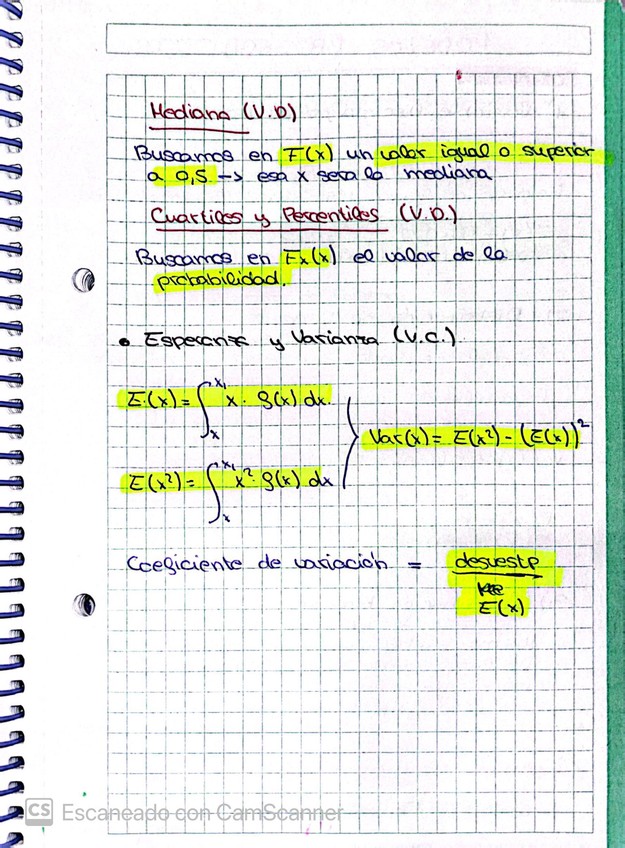 Mediana (V.D)
Buscamos en F(x) un valor igual o superior
a 0,5 -> esa x sera la mediana
Cuartiles y Percentiles (V.D.)
Buscamos en Fx(x) el valor de la
probabilidad.
• Esperanza y Varianza (V.C.)
E(x) = ∫ₓˣ¹ x · f(x) dx
Var(x) = E(x²) - (E(x))²
E(x²) = ∫ₓˣ¹ x² · f(x) dx
Coeficiente de variación = desvestp
E(x)
CS Escaneado con CamScanner